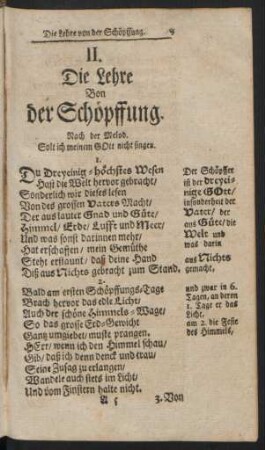 Die Lehre von der Schöpffung.
II.
Die Lehre
Von
der Schöpffung.
Nach der Melod.
Solt ich meinem GOtt nicht singen.
1.
DU Dreyeinig-höchstes Wesen
Hast die Welt hervor gebracht,
Sonderlich wir dieses lesen
Von des grossen Vaters Macht,
Der aus lauter Gnad und Güte,
Himmel, Erde, Lufft und Meer,
Und was sonst darinnen mehr,
Hat erschaffen, mein Gemüthe
Steht erstaunt, daß deine Hand
Diß aus Nichts gebracht zum Stand.
Der Schöpffer
ist der dreyei-
nige GOtt,
insonderheit der
Vater, der
aus Güte, die
Welt und
was darin
aus Nichts
gemacht,
2.
Bald am ersten Schöpffungs-Tage
Brach hervor das edle Licht,
Auch der schöne Himmels-Wage,
So das grosse Erd-Gewicht
Gantz umgiebet, muste prangen.
HErr, wenn ich den Himmel schau,
Gib, daß ich denn denck und trau,
Seine Zusag zu erlangen,
Wandele auch stets im Licht,
Und vom Finstern halte nicht.
und zwar in 6.
Tagen, an deren
1. Tage er das
Licht,
am 2. die Feste
des Himmels,
A 5
3. Von